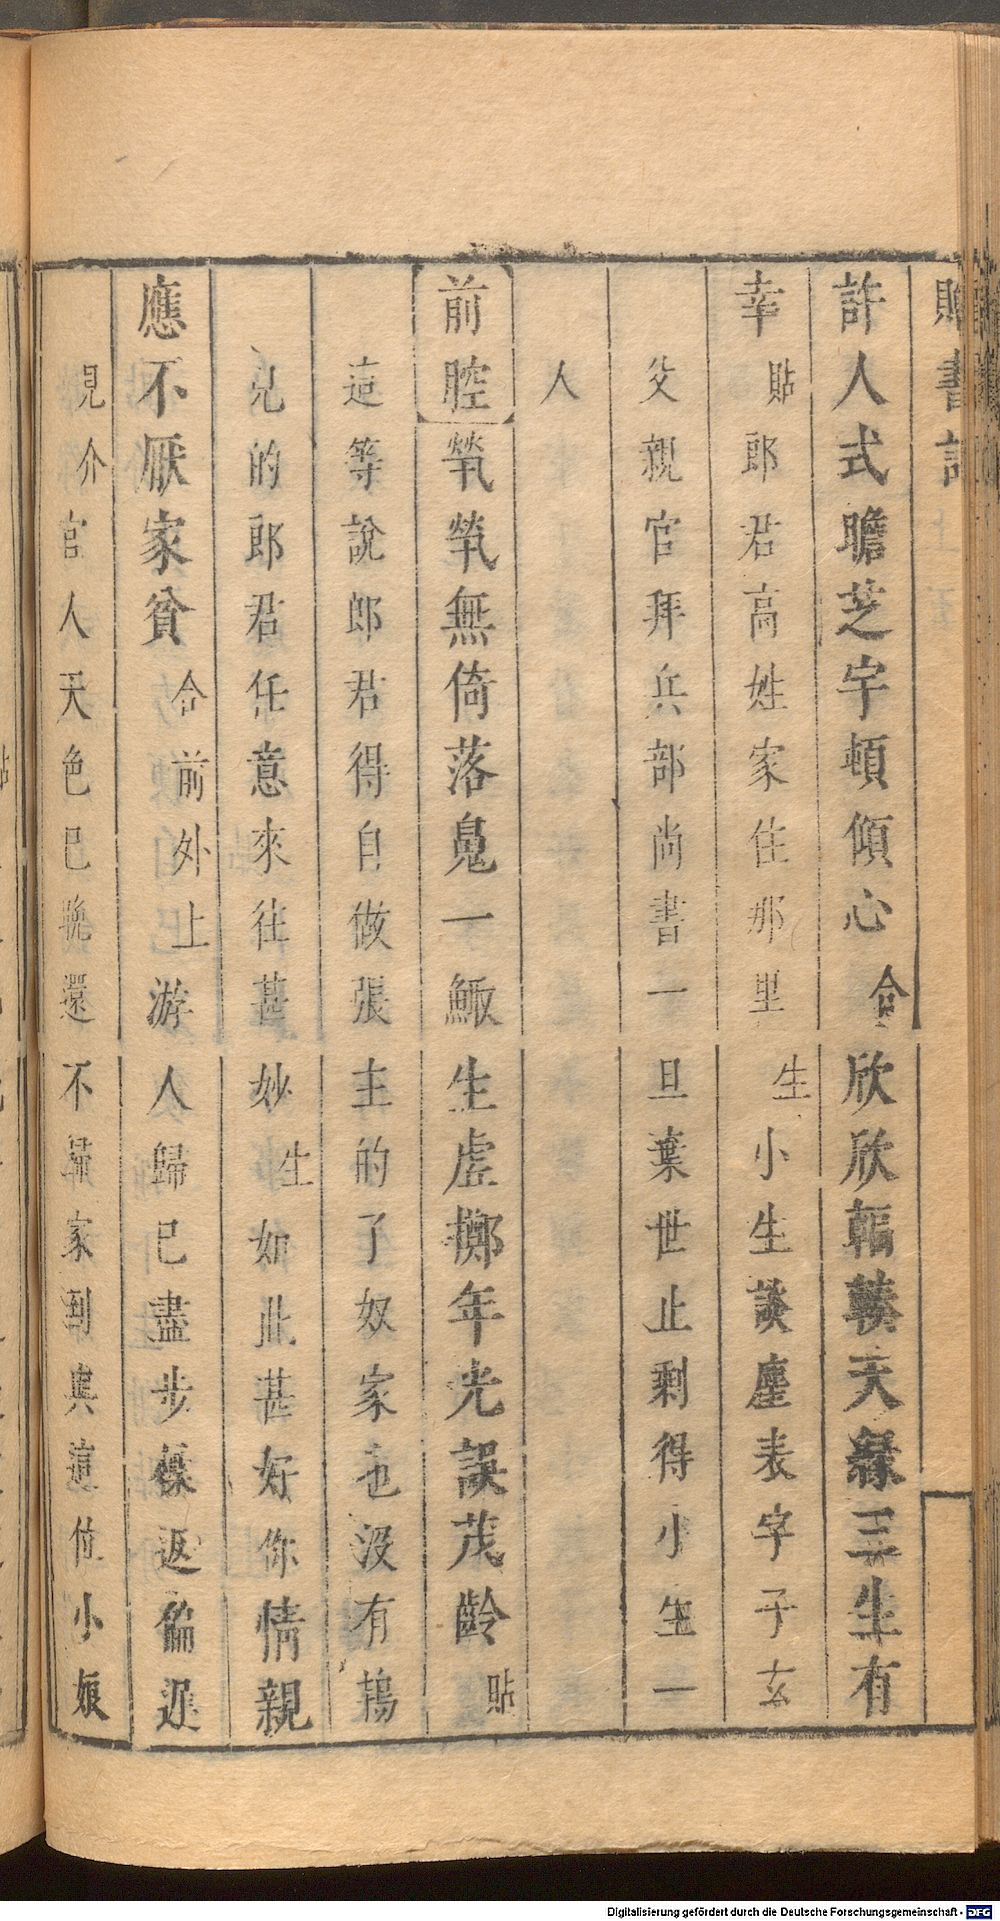 書記
許人式瞻芝宇頓傾心合欣欣輻輳天緣三生有
幸貼郎君高姓家住那里生小生談塵表字子玄
父親官拜兵部尚書一旦棄世止剩得小生一
人
前腔煢煢無倚落䰟一鯫生虛擲年光誤茂齡貼
這等說郎君得自做張主的了奴家也没有鴇
兒的郎君任意來往甚妙生如此甚好你情親
應不厭家貧合前外上游人歸已盡步屧返偏遲
見介官人天色已晚還不歸家到與這位小娘
Digitalisierung gefördert durch die Deutsche Forschungsgemeinschaft - DFG